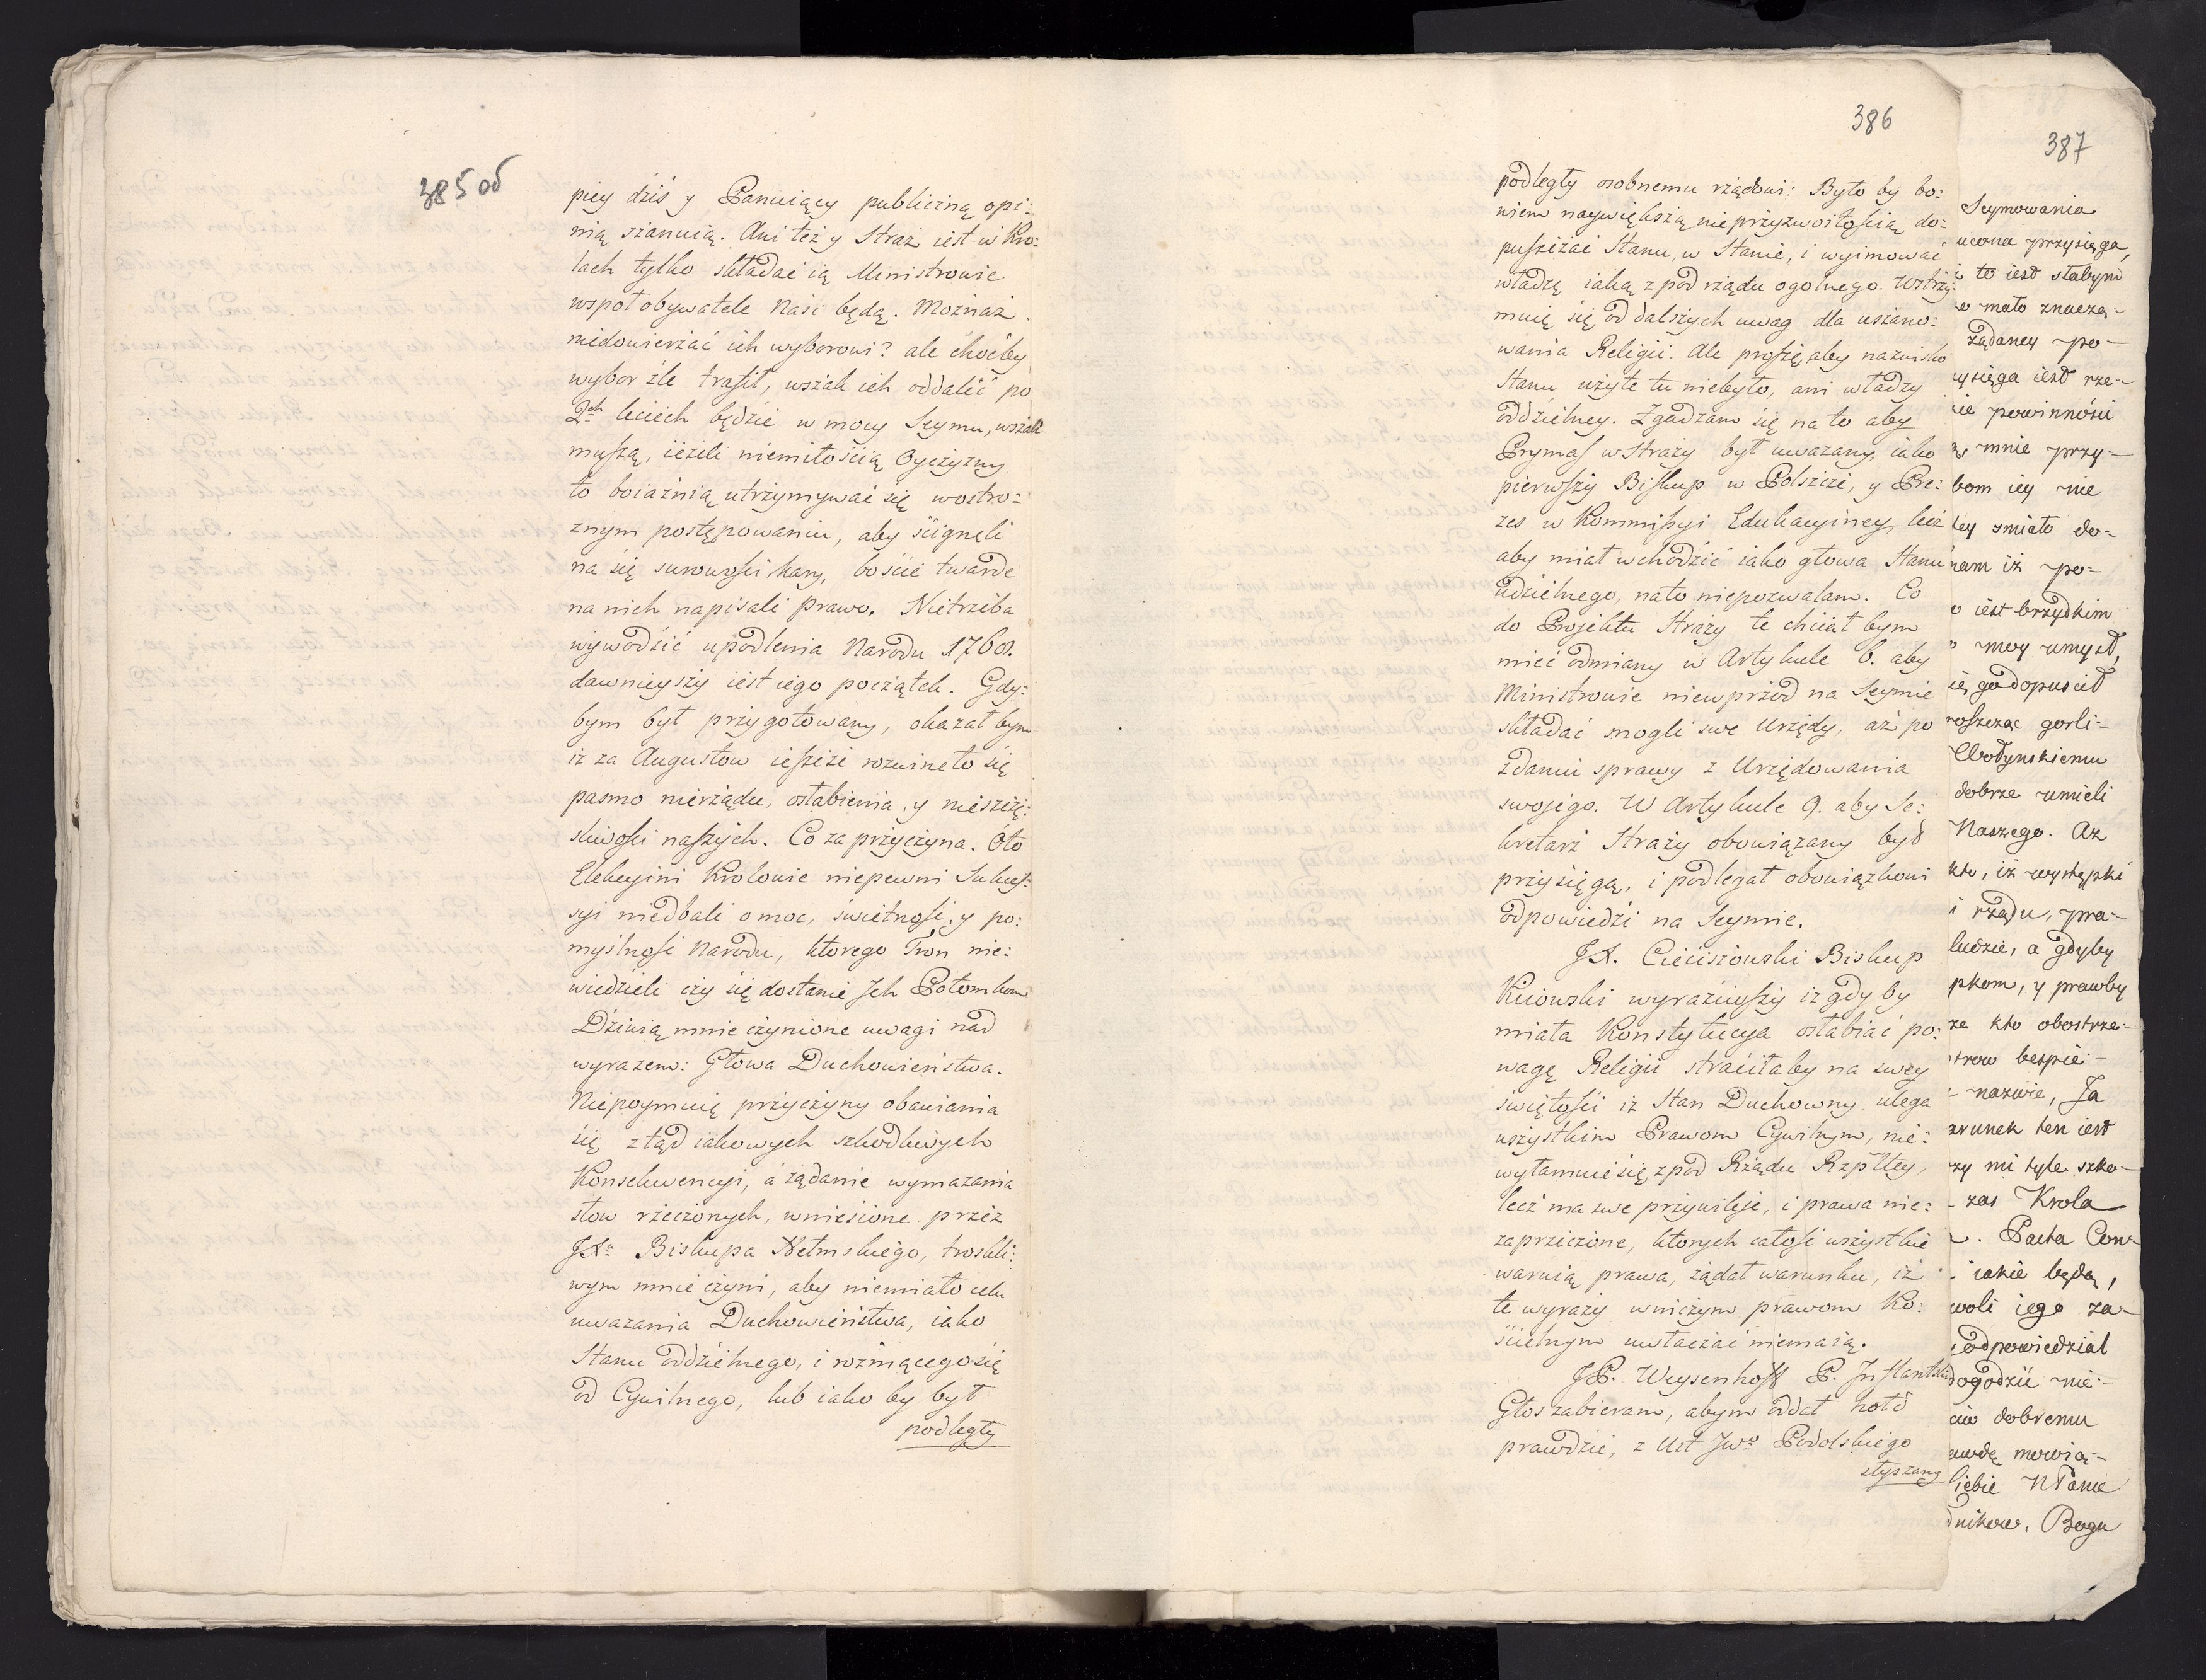 385 об
piey dziś y Panuiący publiczną opi:
nią szanuią. Ani też y Straz iest w Kro:
lach tylko składać ią Ministrowie
wspołobywatele Nasi będą. Moznaż
niedowierzać ich wyborowi? ale choćby
wybor źle trafił, wszak ich oddalić po
2ch leciech będzie w mocy Seymu, wszak
muszą, ieżeli niemiłością Oyczyzny
to boiaźnią utrzymywać się wostro=
znym postępowaniu, aby ściągneli
na się surowości kary, boście twarde
na nich napisali prawo. Nietrzeba
wywodzić upodlenia Narodu 1768.
dawnieyszy iest iego początek. Gdy:
bym był przygotowany, okazałbym
iz za Augustow ieszcze rozwineło się
pasmo nierządu, osłabienia, y nieszczę:
śliwości naszych. Co za przyczyna. Oto
Elekcyini Krolowie niepewni Sukces:
syi niedbali o moc, świetność, y po:
myślność Narodu, ktorego Tron nie:
wiedzieli czy się dostanie Jch Potomkom
Dziwią mnie czynione uwagi nad
wyrazem: Głowa Duchowieństwa.
Niepoymuię przyczyny obawiania
się ztąd iakowych szkodliwych
Konsekwencyi, a żądanie wymazania
słow rzeczonych, wniesione przez
JXa Biskupa Chełmskiego, troskli:
wym mnie czyni, aby niemiało celu
uwazania Duchowieństwa, iako
Stanu oddzielnego, i rozniącego się
od Cywilnego, lub iako by był
podległy
386
podległy osobnemu rządowi: Było by bo:
wiem naywiększą nieprzyzwoitością do:
puszczać Stanu, w Stanie, i wyimować
władzę iaką z pod rządu ogolnego. Wstrzy:
muię się od dalszych uwag dla uszano:
wania Religii. Ale proszę, aby nazwisko
Stanu uzyte tu niebyło, ani władzy
oddzielney. Zgadzam się na to aby
Prymas w Strazy był uwazany, iako
pierwszy Biskup w Polszcze, y Pre:
zes w Kommissyi Edukacyiney, lecz
aby miał wchodzić iako głowa Stanu
udzielnego, nato niepozwalam. Co
do Projektu Strazy te chciał bym
mieć odmiany w Artykule 6. aby
Ministrowie niewprzod na Seymie
składać mogli swe Urzędy, aż po
zdaniu sprawy z Urzędowania
swojego. W Artykule 9. aby Se:
kretarz Strazy obowiązany był
przysięgą, i podlegał obowiązkowi
odpowiedzi na Seymie.
JX. Cieciszowski Biskup
Kiiowski wyraziwszy iz gdy by
miała Konstytucya osłabiać po:
wagę Religii straciłaby na swey
swiętości iz Stan Duchowny ulega
wszystkim Prawom Cywilnym, nie:
wyłamuie się z pod Rządu Rzpltey,
lecz ma swe przywileje, i prawa nie:
zaprzeczone, ktorych całość wszystkie
waruią prawa, żądał warunku, iż
te wyrazy wniczym prawom Ko:
ścielnym uwłaczać niemaią.
JP. Weysenhoff P. Jnflantski
Głos zabieram, abym oddał hołd
prawdzie, z Ust JWo Podolskiego
słyszaney
387
Seymowania
ucona przysięga,
to iest słabym
mało znaczą-
żądaney po-
ysięga iest rze-
ie powinności
mnie przy-
bom iey nie
tey smiało do-
nam iż po-
iest brzydkim
moy umysł,
ię go dopuścił
roszcząc gorli-
Wołynskiemu
dobrze umieli
Naszego. Az
kto, iż występki
i rządu, pra-
ludzie, a gdyby
pkom, y prawby
ze kto obostrze-
trow bespie-
nazwie, Ja
arunek ten iest
zy mi tyle szko-
zas Krola
Pacta Con-
iakie będą,
woli iego za-
odpowiedział
dogodzić nie-
cio dobremu
awdę mowią-
Ciebie N Panie
dnikow. Bogu